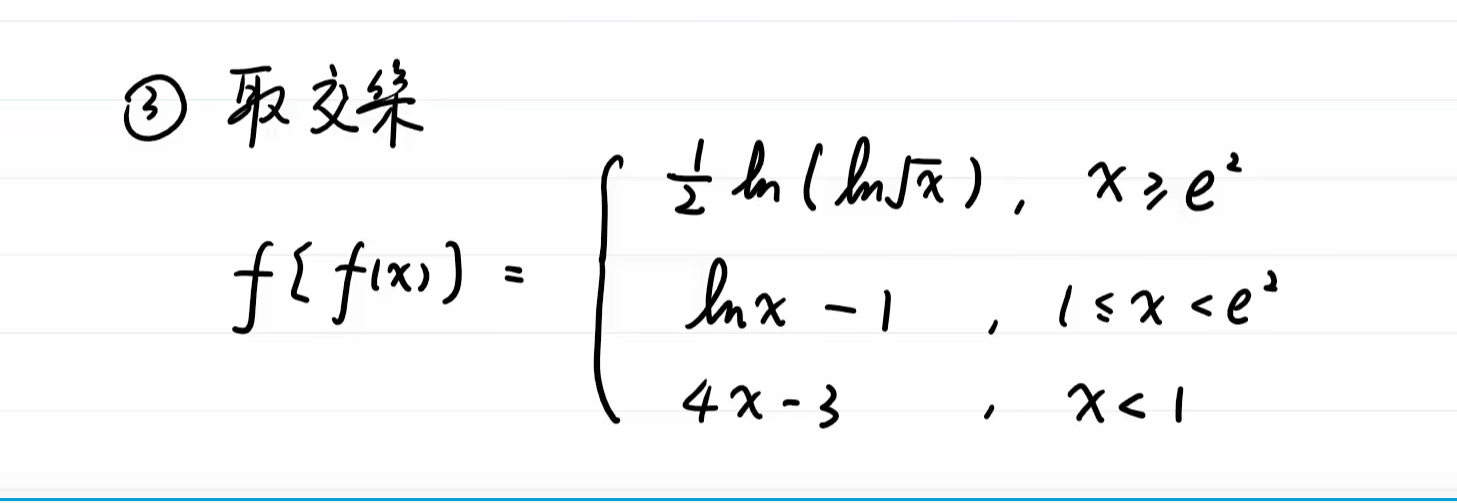 ③ 取交集
½ ln(ln√x), x ≥ e²
f[f(x)] = { ln x - 1, 1 ≤ x < e²
4x - 3, x < 1